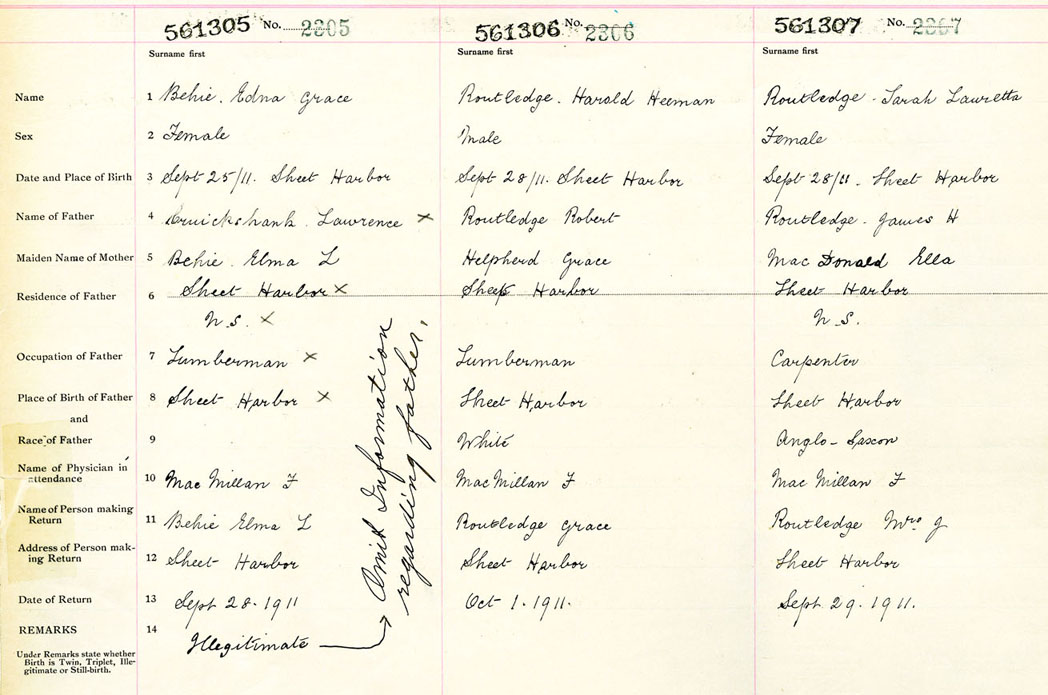 561305 No. 2305 561306 No. 2306 561307 No. 2307
Surname first Surname first Surname first
Name 1 Behie. Edna Grace Routledge. Harold Heeman Routledge - Sarah Lauretta
Sex 2 Female Male Female
Date and Place of Birth 3 Sept 25/11. Sheet Harbor Sept 28/11. Sheet Harbor Sept 28/11. Sheet Harbor
Name of Father 4 Cruickshank. Lawrence x Routledge Robert Routledge. James H
Maiden Name of Mother 5 Behie. Elma L Helpherd Grace Mac Donald Ella
Residence of Father 6 Sheet Harbor x Sheet Harbor Sheet Harbor
N.S. x N.S.
Occupation of Father 7 Lumberman x Lumberman Carpenter
Place of Birth of Father 8 Sheet Harbor x Sheet Harbor Sheet Harbor
and
Race of Father 9 White Anglo-Saxon
Name of Physician in
attendance 10 Mac Millan F Mac Millan F Mac Millan F
Name of Person making
Return 11 Behie Elma L Routledge Grace Routledge Mrs J
Address of Person mak-
ing Return 12 Sheet Harbor Sheet Harbor Sheet Harbor
Date of Return 13 Sept 28.1911 Oct 1.1911. Sept 29.1911.
REMARKS 14 Illegitimate → Omit Information
regarding father.
Under Remarks state whether
Birth is Twin, Triplet, Ille-
gitimate or Still-birth.